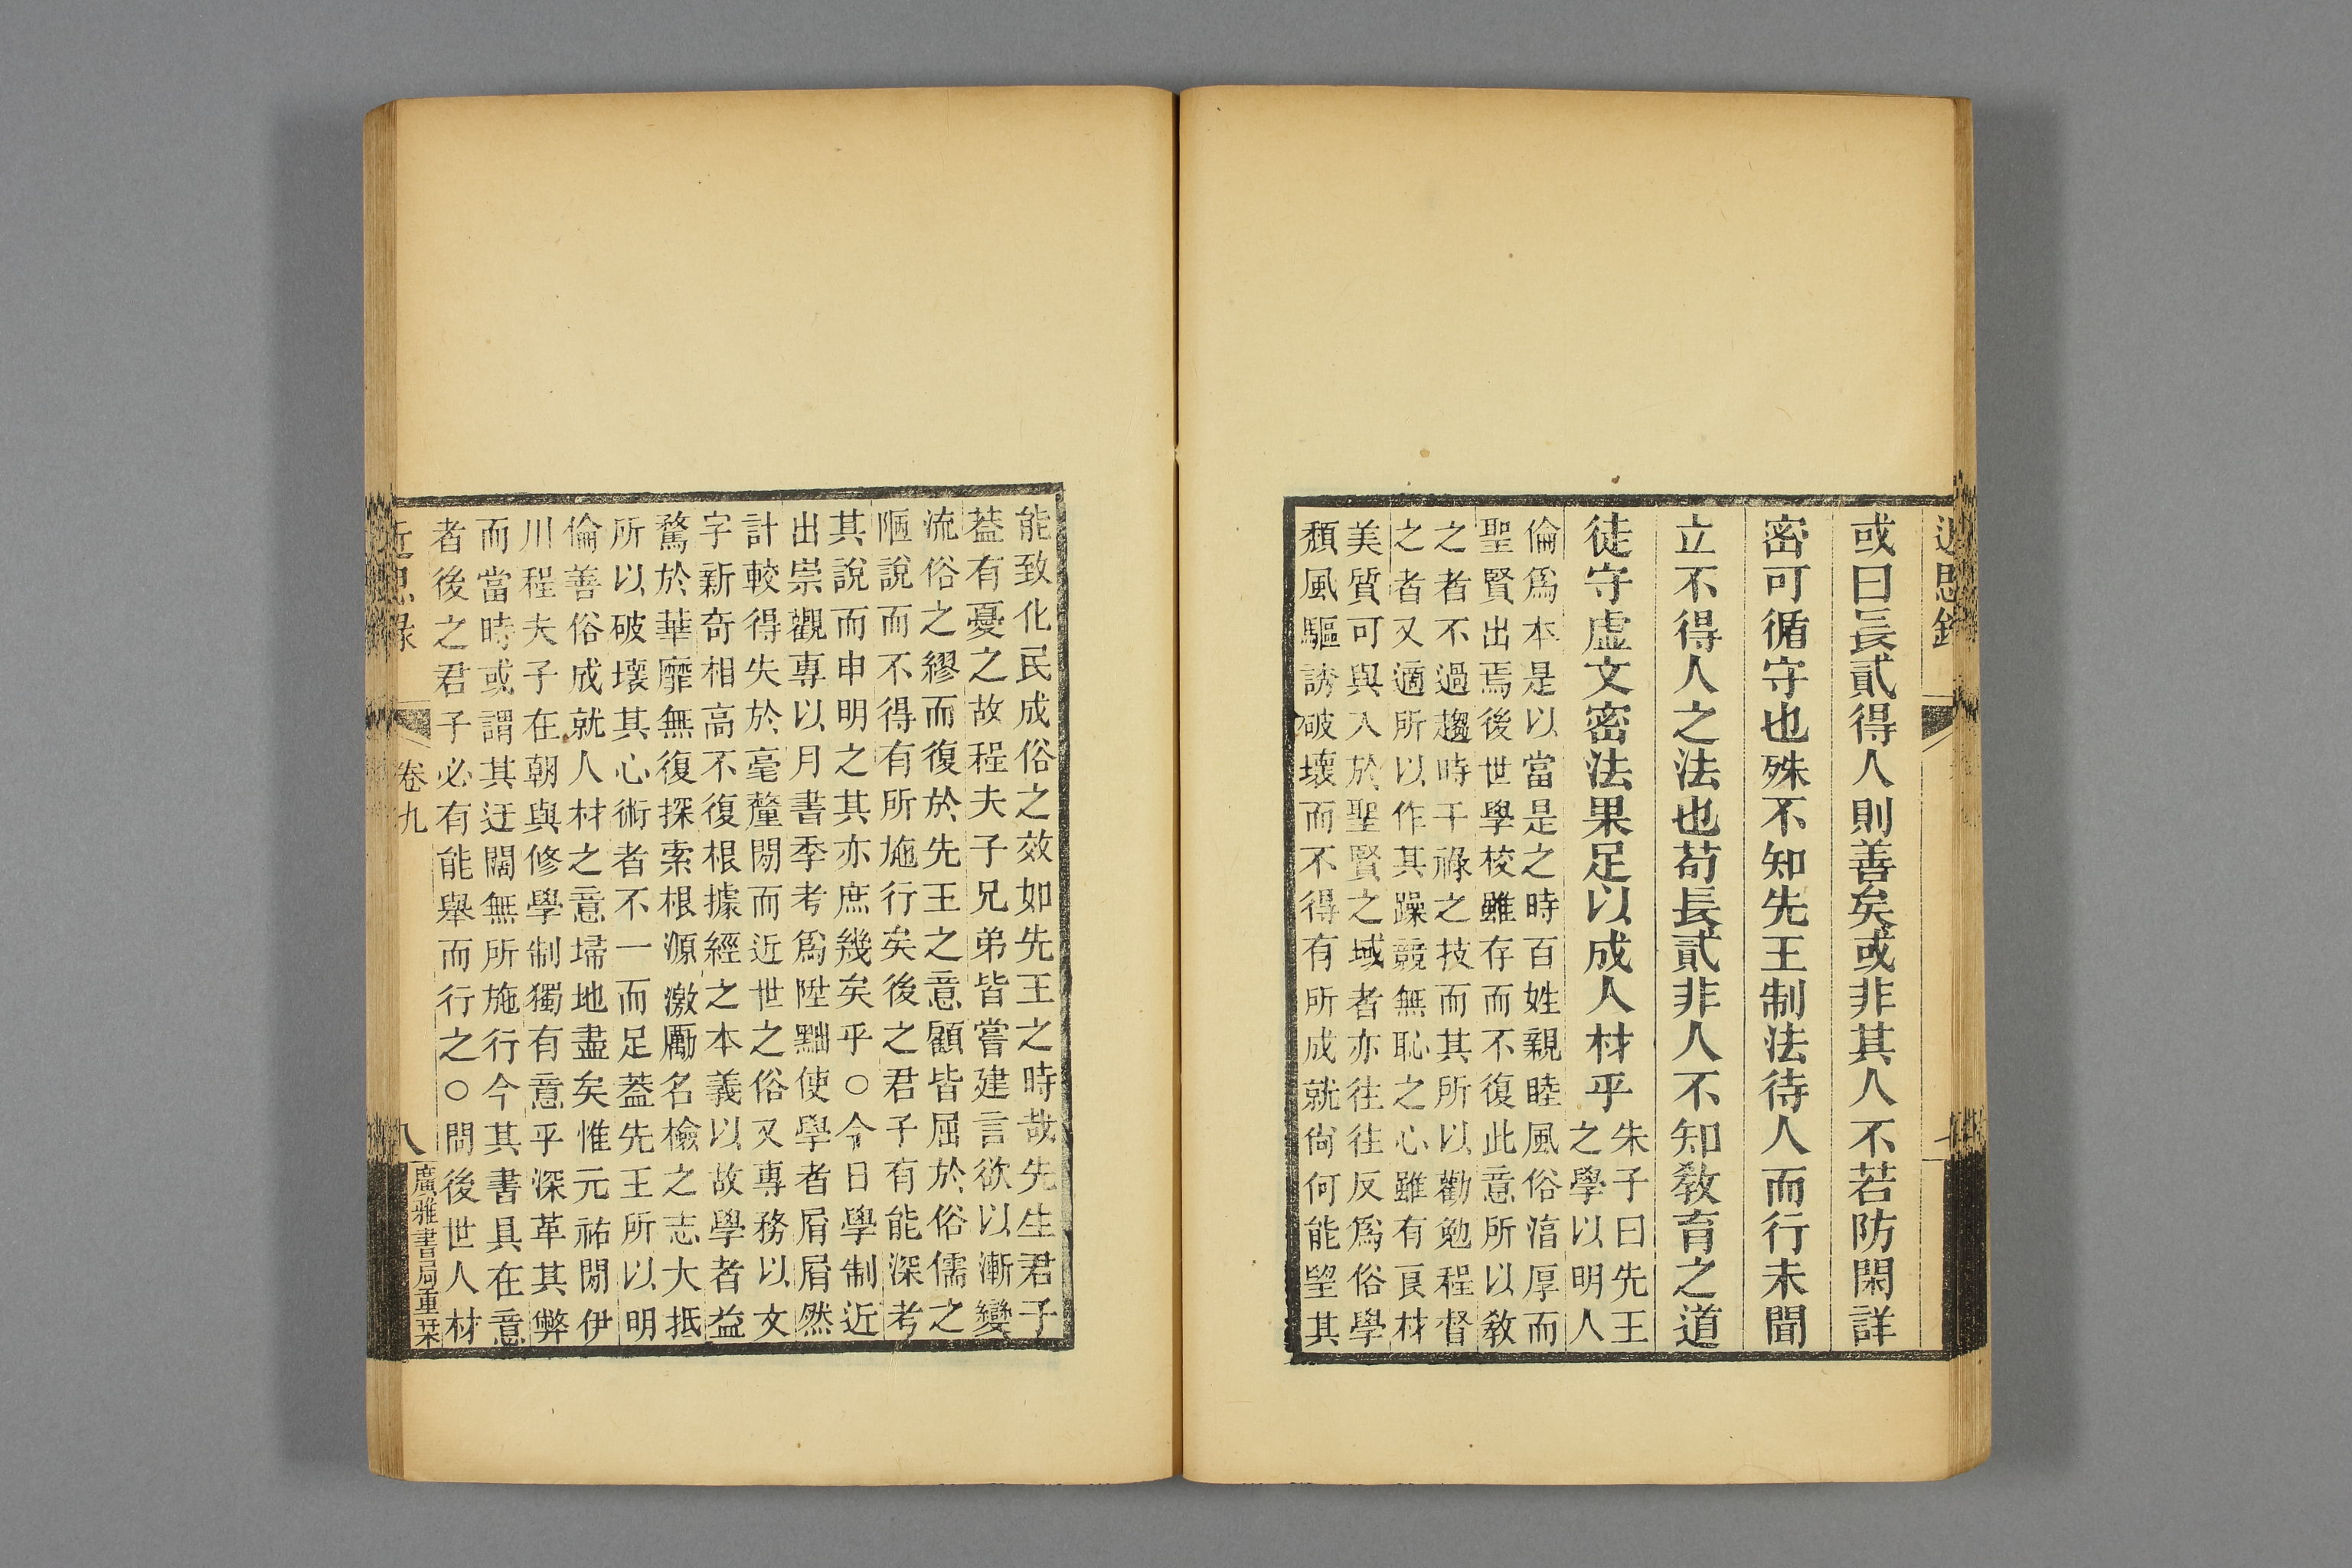 近思錄
或曰長貳得人則善矣或非其人不若防閑詳
密可循守也殊不知先王制法待人而行未聞
立不得人之法也苟長貳非人不知敎育之道
徒守虛文密法果足以成人材乎
朱子曰先王
之學以明人
倫爲本是以當是之時百姓親睦風俗湻厚而
聖賢出焉後世學校雖存而不復此意所以敎
之者不過趨時干祿之技而其所以勸勉程督
之者又適所以作其躁競無恥之心雖有良材
美質可與入於聖賢之域者亦往往反爲俗學
頹風驅誘破壞而不得有所成就尙何能望其
能致化民成俗之效如先王之時哉先生君子
葢有憂之故程夫子兄弟皆嘗建言欲以漸變
流俗之繆而復於先王之意顧皆屈於俗儒之
陋說而不得有所施行矣後之君子有能深考
其說而申明之其亦庶幾矣乎○今日學制近
出崇觀專以月書季考爲陞黜使學者屑屑然
計較得失於毫釐閒而近世之俗又專務以文
字新奇相高不復根據經之本義以故學者益
騖於華靡無復探索根源激勵名檢之志大抵
所以破壞其心術者不一而足葢先王所以明
倫善俗成就人材之意埽地盡矣惟元祐閒伊
川程夫子在朝與修學制獨有意乎深革其弊
而當時或謂其迂闊無所施行今其書具在意
者後之君子必有能舉而行之○問後世人材
近思錄
卷九
八
廣雅書局重栞